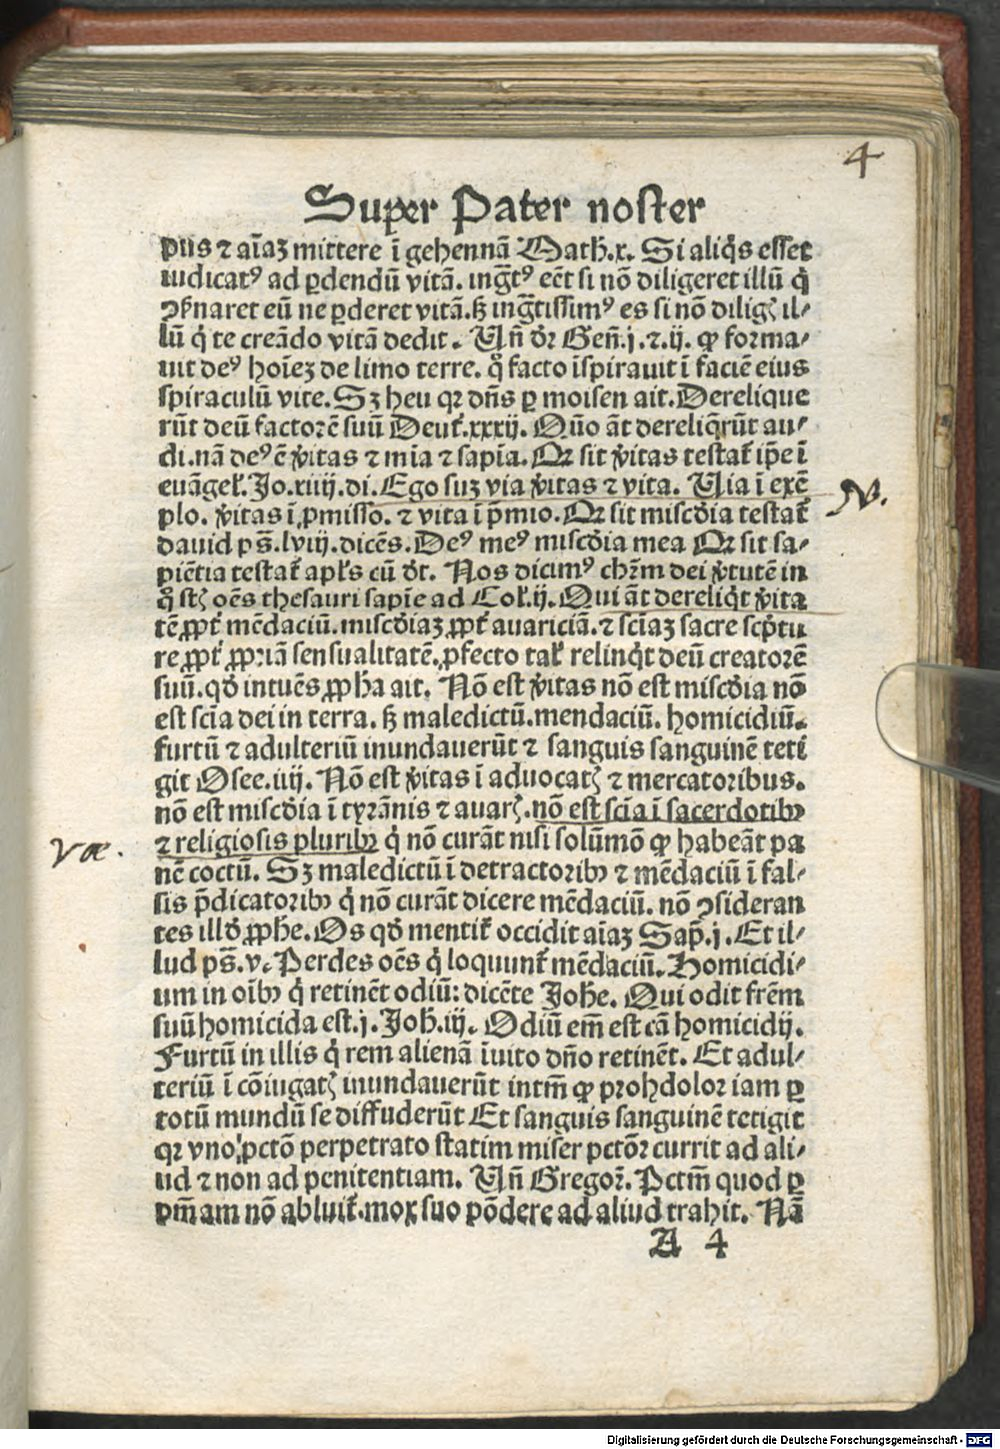 4
Super Pater noster
pus ⁊ aīaz mittere ī gehennā Math̄.x. Si aliq̇s esset
iudicatꝰ ad ꝑdendū vitā. ingr̄tꝰ eēt si nō diligeret illū q̇
ꝯẜnaret eū ne ꝑderet vitā. sꝫ ingr̄tissimꝰ es si nō dilig̃ il⸗
lū q̇ te creādo vitā dedit. Un̄ dr̄ Gen̄.j.⁊.ij. ꝙ forma⸗
uit deꝰ hoīez de limo terre. q̊ facto īspirauit ī faciē eius
spiraculū vite. Sꝫ heu qꝛ dn̄s ꝑ moisen ait. Derelique
rūt deū factorē suū Deut̄.xxxij. Qūo āt dereliq̄rūt au⸗
di. nā deꝰ ē v̄itas ⁊ mīa ⁊ sapīa. Qꝛ sit v̄itas testat̄ ip̄e ī
euāgel̄. Jo.xiiij.di. Ego suꝫ via v̄itas ⁊ vita. Uia ī exē
plo. v̄itas ī ꝓmisso. ⁊ vita ī p̄mio. Qꝛ sit misc̄dia testat̄
dauid ps̄.lviij.dicēs. Deꝰ meꝰ misc̄dia mea Qꝛ sit sa⸗
piētia testat̄ apl̄s cū dt̄. Nos dicimꝰ chr̄m dei v̄tutē in
q̊ st̄ oēs thesauri sapīe ad Col̄.ij. Qui āt dereliq̇t v̄ita
tē ꝓpt̄ mēdaciū. misc̄diaꝫ ꝓpt̄ auariciā. ⁊ scīaꝫ sacre scp̄tu
re ꝓpt̄ ꝓpriā sensualitatē. ꝓfecto tal̄ relinq̇t deū creatorē
suū. qd̄ intuēs ꝓph̄a ait. Nō est v̄itas nō est misc̄dia nō
est scīa dei in terra. sꝫ maledictū. mendaciū. homicidiū.
furtū ⁊ adulteriū inundauerūt ⁊ sanguis sanguinē teti
git Osee.iiij. Nō est v̄itas ī aduocat̃ ⁊ mercatoribus.
nō est misc̄dia ī tyrānis ⁊ auar̃. nō est scīa ī sacerdotibꝰ
⁊ religiosis pluribꝰ q̇ nō curāt nisi solūmō ꝙ habeāt pa
nē coctū. Sꝫ maledictū ī detractoribꝰ ⁊ mēdaciū ī fal⸗
sis p̄dicatoribꝰ q̇ nō curāt dicere mēdaciū. nō ꝯsideran
tes illd̄ ꝓph̄e. Os qd̄ mentit̄ occidit aīaꝫ Sap̄.j. Et il⸗
lud ps̄.v. Perdes oēs q̇ loquunt̄ mēdaciū. Homicidi⸗
um in oībꝰ q̇ retinēt odiū: dicēte Joh̄e. Qui odit frēm
suū homicida est.j. Joh̄.iij. Odiū em̄ est cā homicidij.
Furtū in illis q̇ rem alienā īuito dn̄o retinēt. Et adul⸗
teriū ī cōiugat̃ inundauerūt intm̄ ꝙ proh dolor iam ꝑ
totū mundū se diffuderūt Et sanguis sanguinē tetigit
qꝛ vno pctō perpetrato statim miser pctōꝛ currit ad ali⸗
ud ⁊ non ad penitentiam. Un̄ Gregoꝛ̄. Pctm̄ quod ꝑ
pn̄iam nō abluit̄. mox suo pōdere ad aliud trahit. Nā
A 4
N.
Væ.
Digitalisierung gefördert durch die Deutsche Forschungsgemeinschaft - DFG